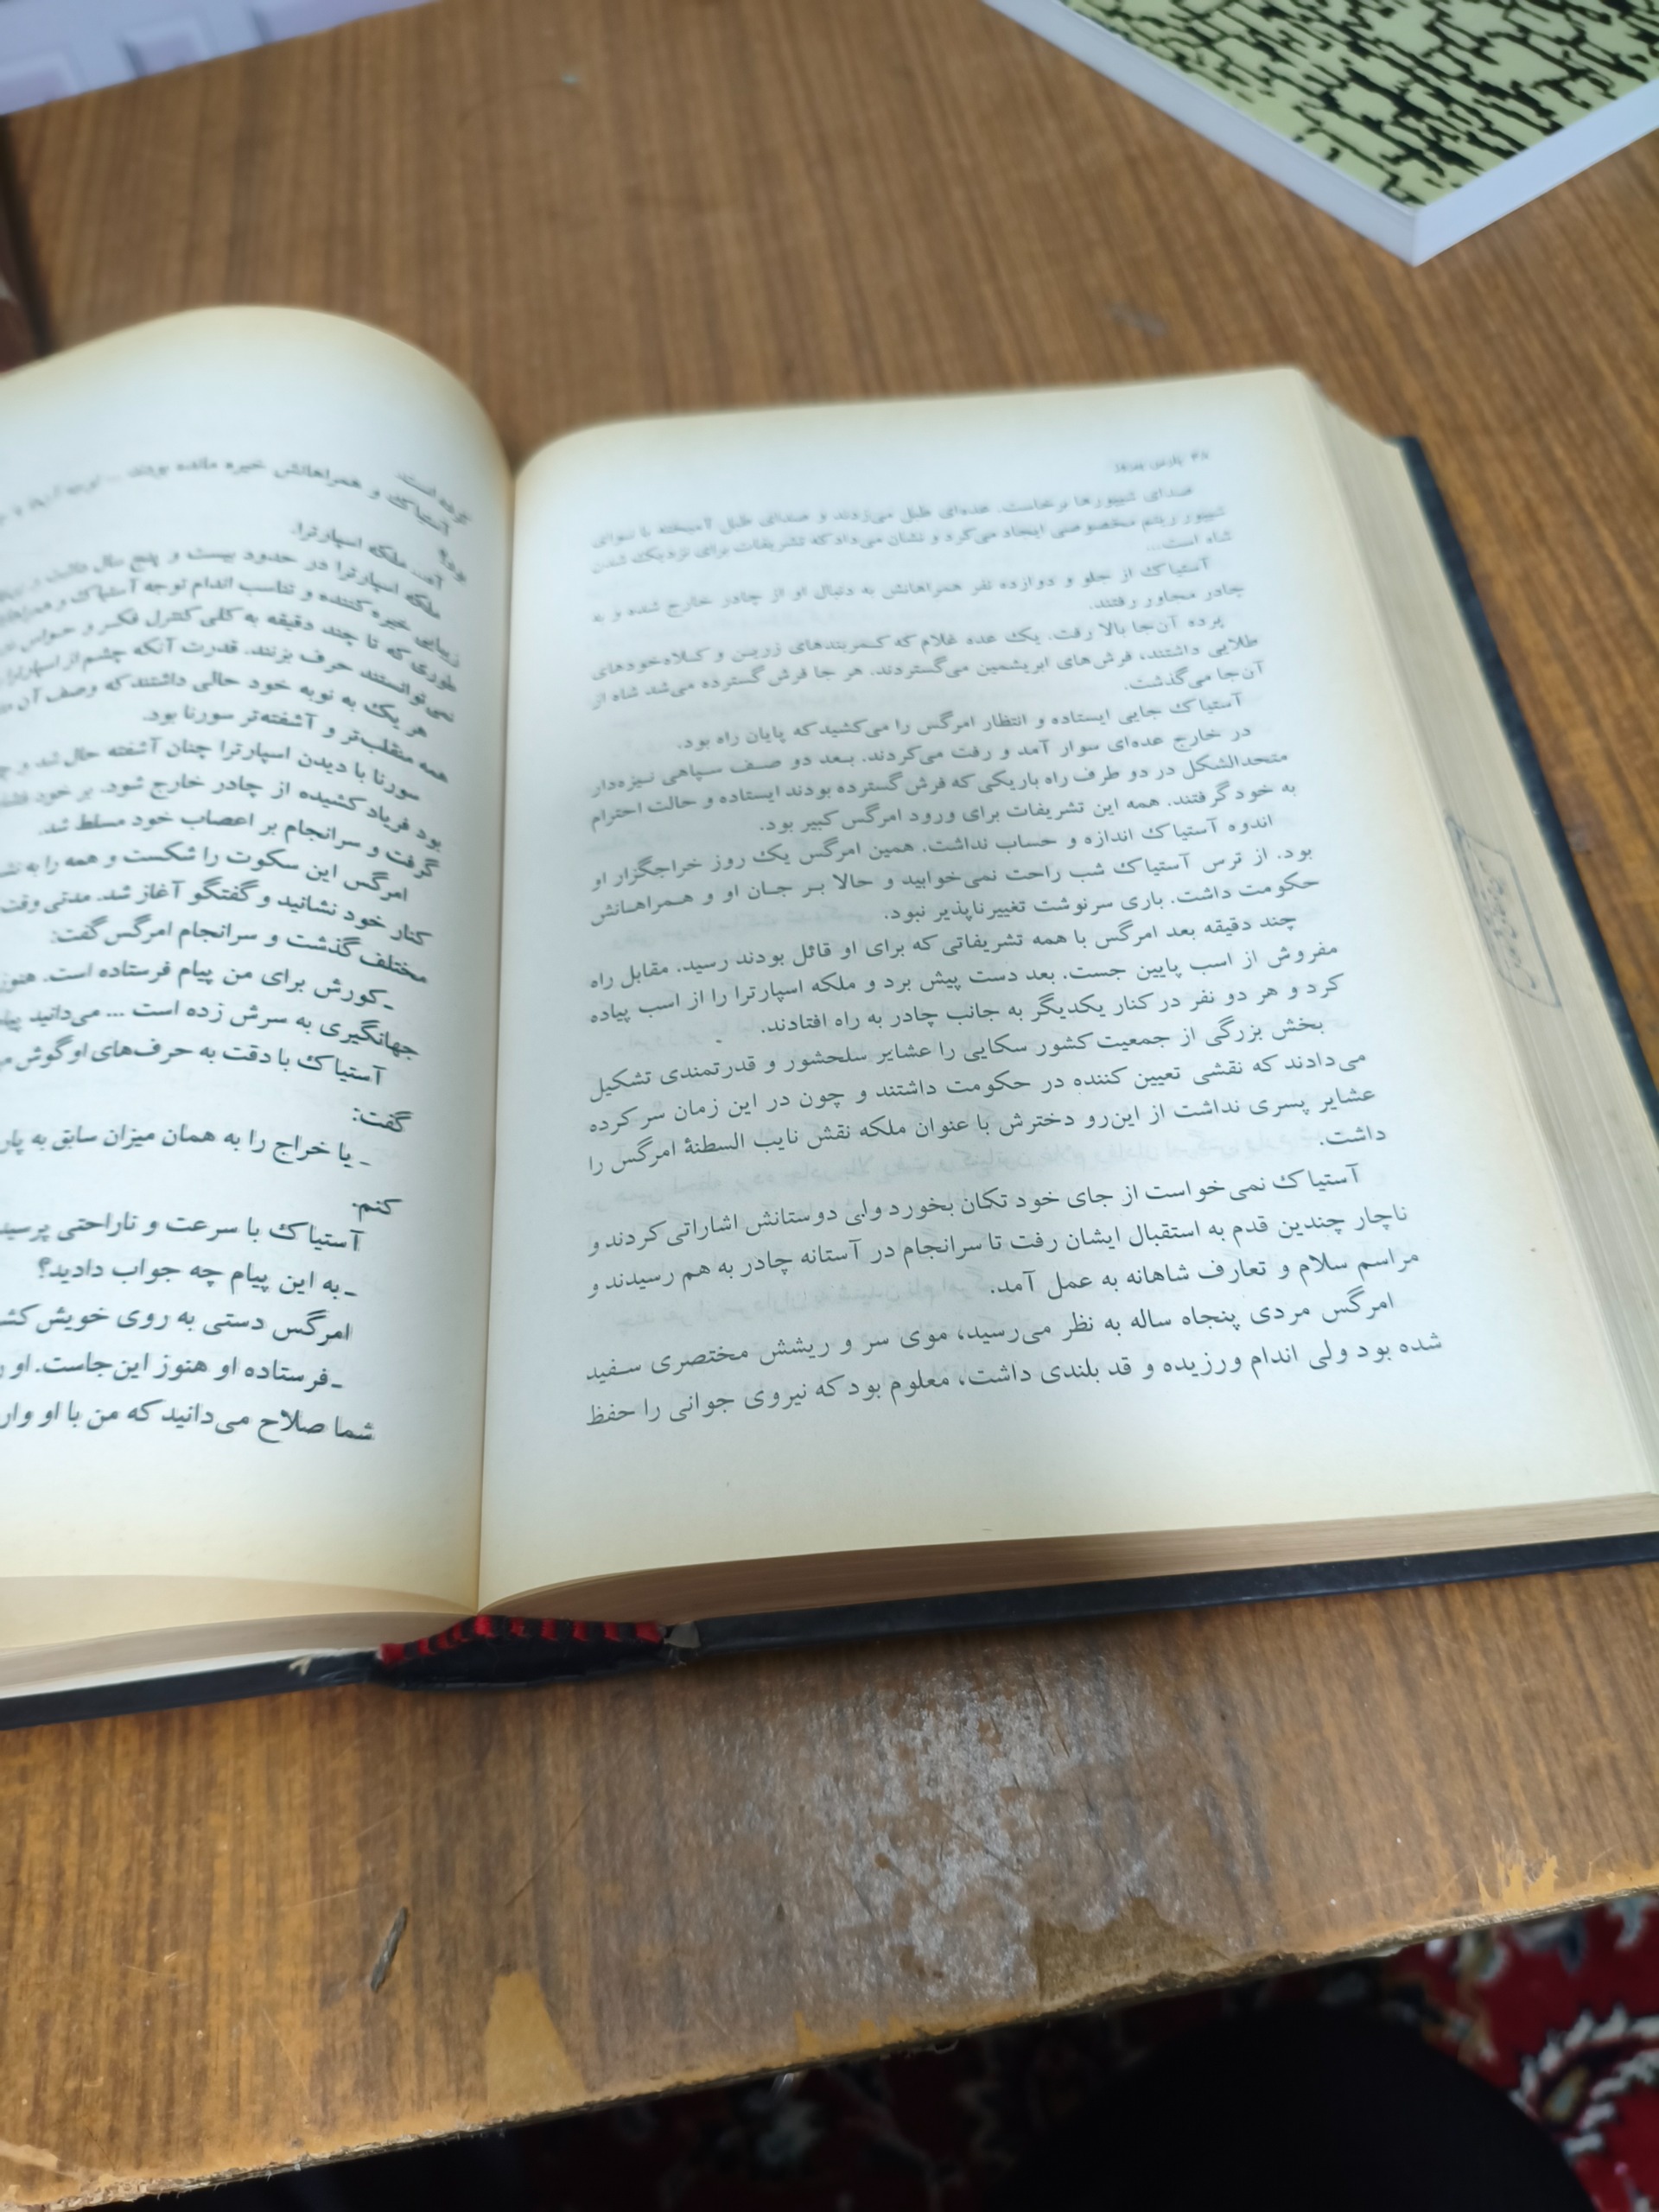 ۴۸ پارسی پیروز
صدای شیپورها برخاست. عده‌ای طبل می‌زدند و صدای طبل آمیخته با نوای
شیپور ریتم مخصوصی ایجاد می‌کرد و نشان می‌داد که تشریفات برای نزدیک شدن
شاه است...
آستیاک از جلو و دوازده نفر همراهانش به دنبال او از چادر خارج شده و به
چادر مجاور رفتند.
پرده آن‌جا بالا رفت. یک عده غلام که کمربندهای زرین و کلاه‌خودهای
طلایی داشتند، فرش‌های ابریشمین می‌گستردند. هر جا فرش گسترده می‌شد شاه از
آن‌جا می‌گذشت.
آستیاک جایی ایستاده و انتظار امرگس را می‌کشید که پایان راه بود.
در خارج عده‌ای سوار آمد و رفت می‌کردند. بعد دو صف سپاهی نیزه‌دار
متحدالشکل در دو طرف راه باریکی که فرش گسترده بودند ایستاده و حالت احترام
به خود گرفتند. همه این تشریفات برای ورود امرگس کبیر بود.
اندوه آستیاک اندازه و حساب نداشت. همین امرگس یک روز خراجگزار او
بود. از ترس آستیاک شب راحت نمی‌خوابید و حالا بر جان او و همراهانش
حکومت داشت. باری سرنوشت تغییرناپذیر نبود.
چند دقیقه بعد امرگس با همه تشریفاتی که برای او قائل بودند رسید. مقابل راه
مفروش از اسب پایین جست. بعد دست پیش برد و ملکه اسپارترا را از اسب پیاده
کرد و هر دو نفر در کنار یکدیگر به جانب چادر به راه افتادند.
بخش بزرگی از جمعیت کشور سکایی را عشایر سلحشور و قدرتمندی تشکیل
می‌دادند که نقشی تعیین کننده در حکومت داشتند و چون در این زمان سر کرده
عشایر پسری نداشت از این‌رو دخترش با عنوان ملکه نقش نایب السطنهٔ امرگس را
داشت.
آستیاک نمی‌خواست از جای خود تکان بخورد ولی دوستانش اشاراتی کردند و
ناچار چندین قدم به استقبال ایشان رفت تا سرانجام در آستانه چادر به هم رسیدند و
مراسم سلام و تعارف شاهانه به عمل آمد.
امرگس مردی پنجاه ساله به نظر می‌رسید، موی سر و ریشش مختصری سفید
شده بود ولی اندام ورزیده و قد بلندی داشت، معلوم بود که نیروی جوانی را حفظ
کرده است.
آستیاک و همراهانش خیره مانده بودند ...
بود؟
آه... ملکه اسپارترا.
ملکه اسپارترا در حدود بیست و پنج سال داشت
زیبایی خیره کننده و تناسب اندام توجه آستیاک و همراهانش
طوری که تا چند دقیقه به کلی کنترل فکر و حواس
نمی‌توانستند حرف بزنند. قدرت آنکه چشم از اسپارترا
هر یک به نوبه خود حالی داشتند که وصف آن
همه منقلب‌تر و آشفته‌تر سورنا بود.
سورنا با دیدن اسپارترا چنان آشفته حال شد و
بود فریاد کشیده از چادر خارج شود. بر خود
گرفت و سرانجام بر اعصاب خود مسلط شد.
امرگس این سکوت را شکست و همه را به
کنار خود نشانید و گفتگو آغاز شد. مدتی وقت
مختلف گذشت و سرانجام امرگس گفت:
ـ کورش برای من پیام فرستاده است. هنوز
جهانگیری به سرش زده است ... می‌دانید
آستیاک با دقت به حرف‌های او گوش
گفت:
ـ یا خراج را به همان میزان سابق به
کنم.
آستیاک با سرعت و ناراحتی
ـ به این پیام چه جواب دادید؟
امرگس دستی به روی خویش
ـ فرستاده او هنوز این‌جاست. او
شما صلاح می‌دانید که من با او